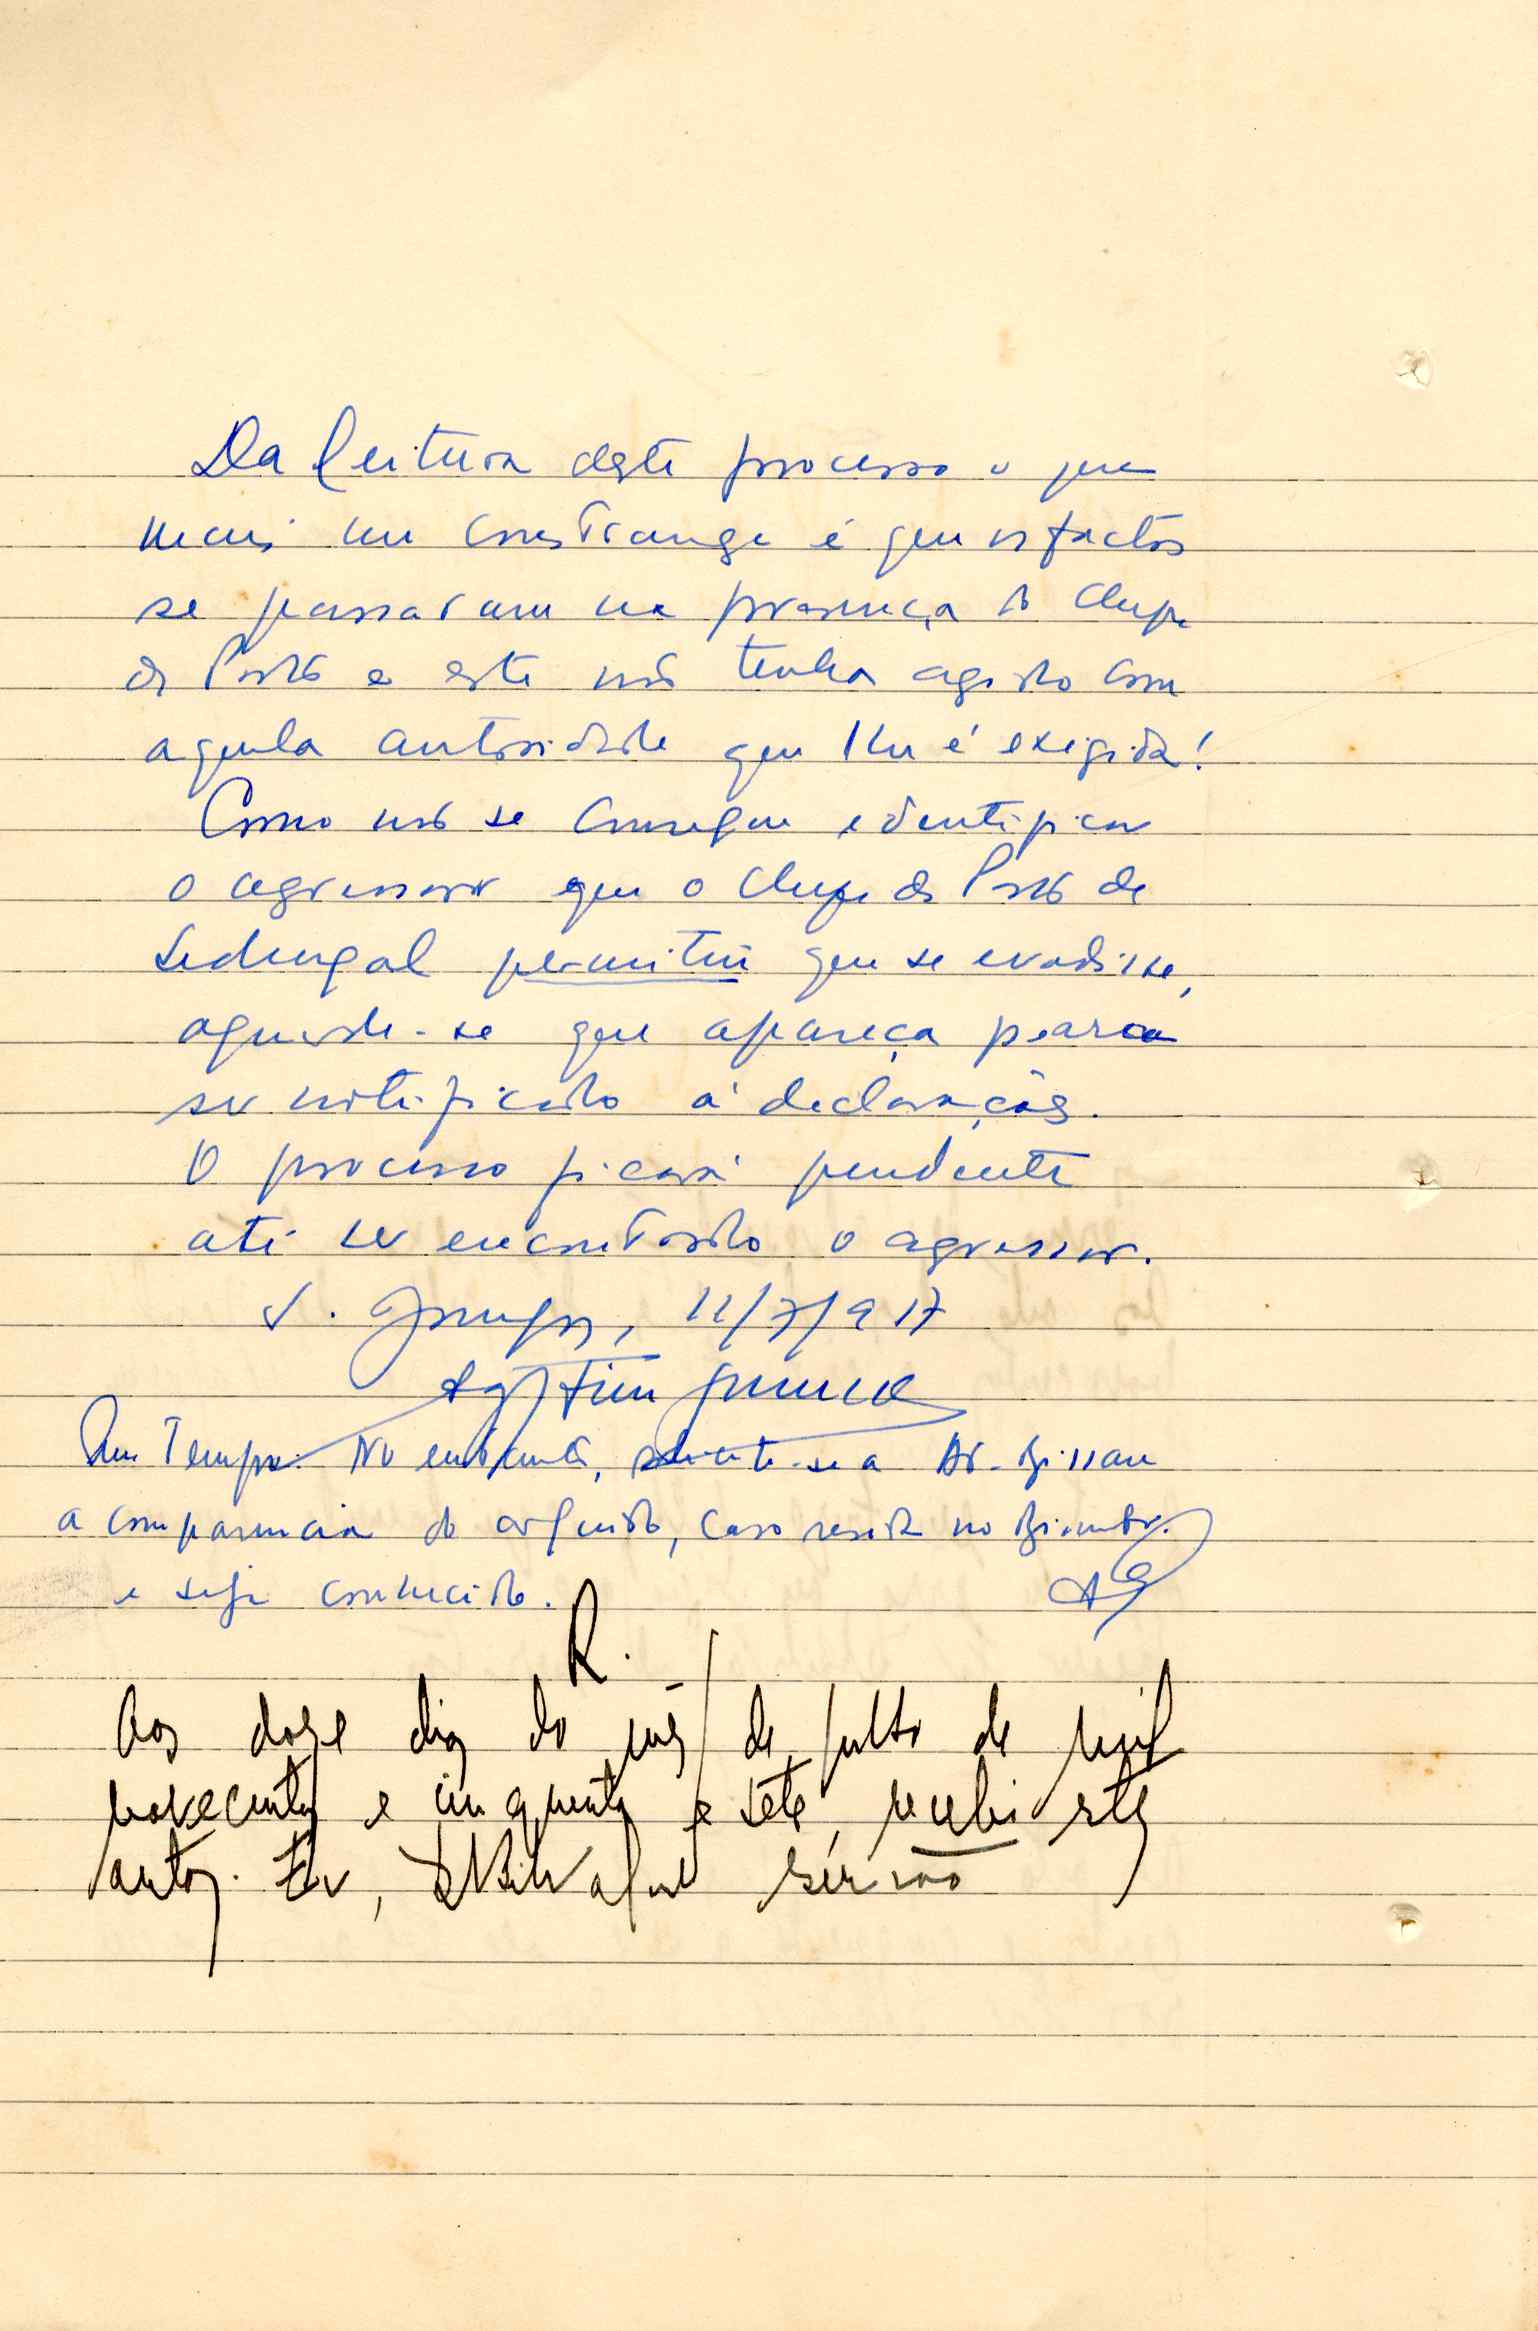 Da leitura deste processo o que
mais me constrange é que os factos
se passaram na presença do Chefe
do Posto e este não tenha agido com
aquela autoridade que lhe é exigida!
Como não se consegue identificar
o agressor que o Chefe do Posto de
Sedengal permitiu que se evadisse,
aguarde-se que apareça para
ser notificado a declarações.
O processo ficará pendente
até ser encontrado o agressor.
S. Domingos, 11/7/957
Em Tempo: No entanto, solicite-se a Ad. Bissau
a comparencia do arguido, caso resida no Biombo
e seja conhecido.
R.
Aos doze dias do mês de julho de mil
novecentos e cinquenta e sete, recebi estes
autos. Eu, escrivão